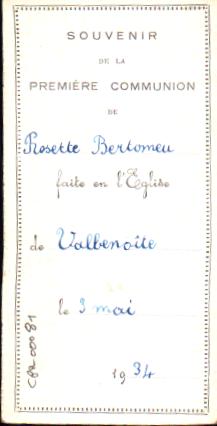 SOUVENIR
DE LA
PREMIÈRE COMMUNION
DE
Rosette Bertomeu
faite en l'Eglise
de Valbenoîte
le 3 mai
1934
CPR00081